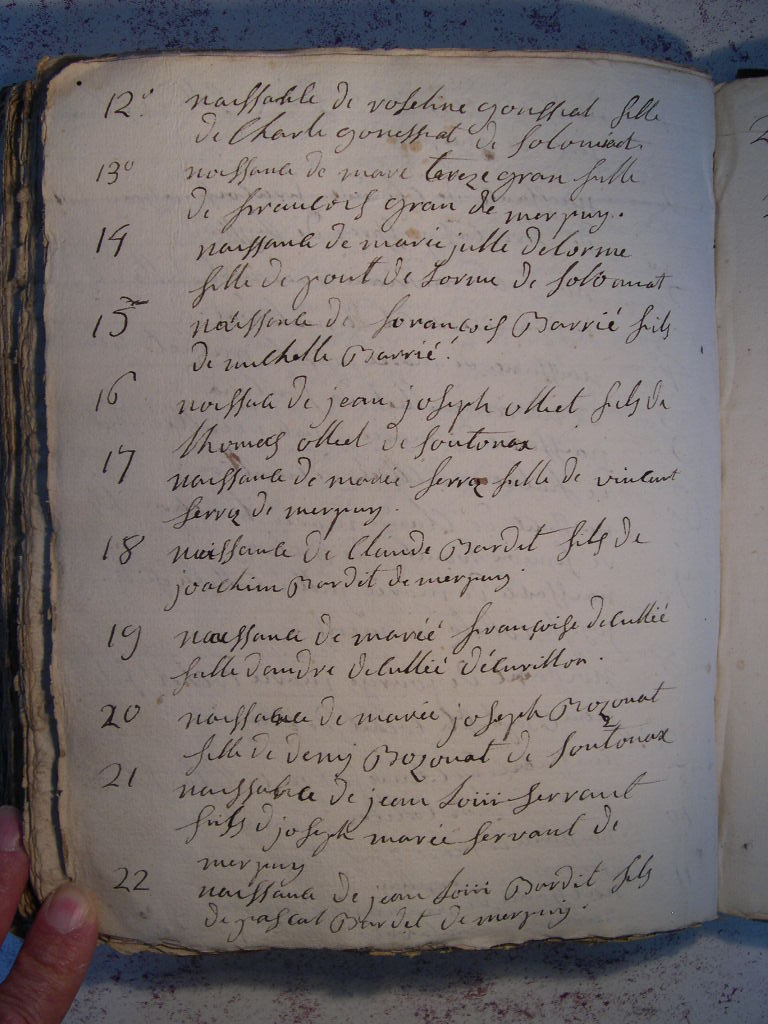 12° naissance de roseline goussiat fille
de Charle goussiat de soloniat.
13° naissance de marie tereze gran fille
de francois gran de merpuy.
14 naissance de marie julle delorme
fille de de Lorme de soloniat
15 naissance de francois Barrié fils
de michelle Barrié.
16 naissance de jean joseph olliet fils de
thomas olliet de soutonax
17 naissance de marie serra fille de vincent
serra de merpuy.
18 naissance de Claude Bardit fils de
joachim Bardit de merpuy.
19 naissance de mariéé francoise delullié
fille dandre delullié
20 naissance de mariee joseph Bozonat
fille de denij Bozonat de soutonax
21 naissance de jean Loiii servant
fiils d joseph mariee servant de
merpuy
22 naissance de jean Loiii Bardit fils
de pascal Bardet de merpuy.